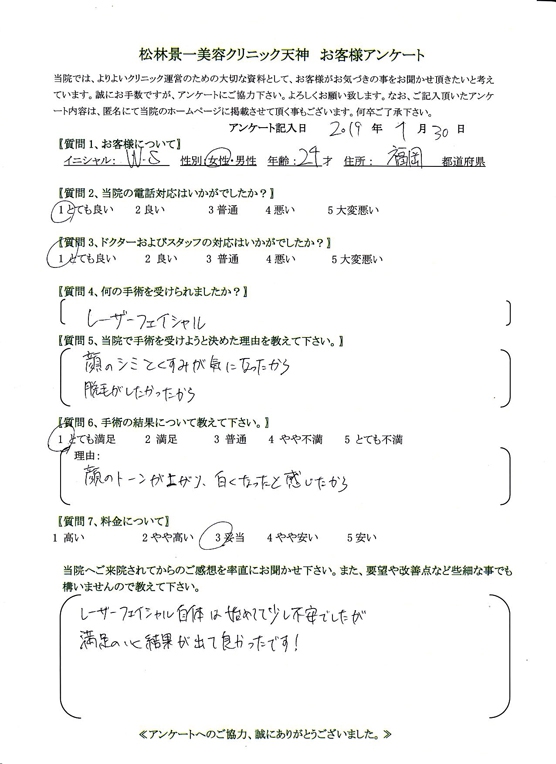 松林景一美容クリニック天神　お客様アンケート
当院では、よりよいクリニック運営のための大切な資料として、お客様がお気づきの事をお聞かせ頂きたいと考え
ています。誠にお手数ですが、アンケートにご協力下さい。よろしくお願い致します。なお、ご記入頂いたアンケ
ート内容は、匿名にて当院のホームページに掲載させて頂く事もございます。何卒ご了承下さい。
アンケート記入日　2019 年 1 月 30 日
〖質問 1、お客様について〗
イニシャル： W.S　性別：女性・男性　年齢：24才　住所：福岡　都道府県
〖質問 2、当院の電話対応はいかがでしたか？〗
1 とても良い　2 良い　3 普通　4 悪い　5 大変悪い
〖質問 3、ドクターおよびスタッフの対応はいかがでしたか？〗
1 とても良い　2 良い　3 普通　4 悪い　5 大変悪い
〖質問 4、何の手術を受けられましたか？〗
レーザーフェイシャル
〖質問 5、当院で手術を受けようと決めた理由を教えて下さい。〗
顔のシミとくすみが気になったから
脱毛がしたかったから
〖質問 6、手術の結果について教えて下さい。〗
1 とても満足　2 満足　3 普通　4 やや不満　5 とても不満
理由：
顔のトーンが上がり、白くなったと感じたから
〖質問 7、料金について〗
1 高い　2 やや高い　3 妥当　4 やや安い　5 安い
当院へご来院されてからのご感想を率直にお聞かせ下さい。また、要望や改善点など些細な事でも
構いませんので教えて下さい。
レーザーフェイシャル自体は始めてで少し不安でしたが
満足のいく結果が出て良かったです！
≪アンケートへのご協力、誠にありがとうございました。≫